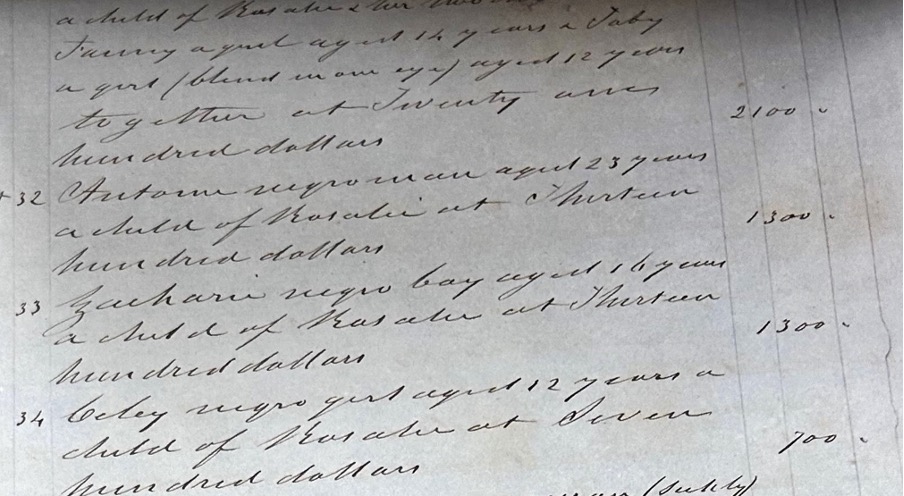 a child of Rosalie & her two
Fanny a girl aged 14 years & Toby
a girl (blind in one eye) aged 12 years
together at Twenty one
hundred dollars 2100
32 Antoine negro man aged 23 years
a child of Rosalie at Thirteen
hundred dollars 1300
33 Zacharie negro boy aged 16 years
a child of Rosalie at Thirteen
hundred dollars 1300
34 Celey negro girl aged 12 years a
child of Rosalie at Seven
hundred dollars 700
(sickly)